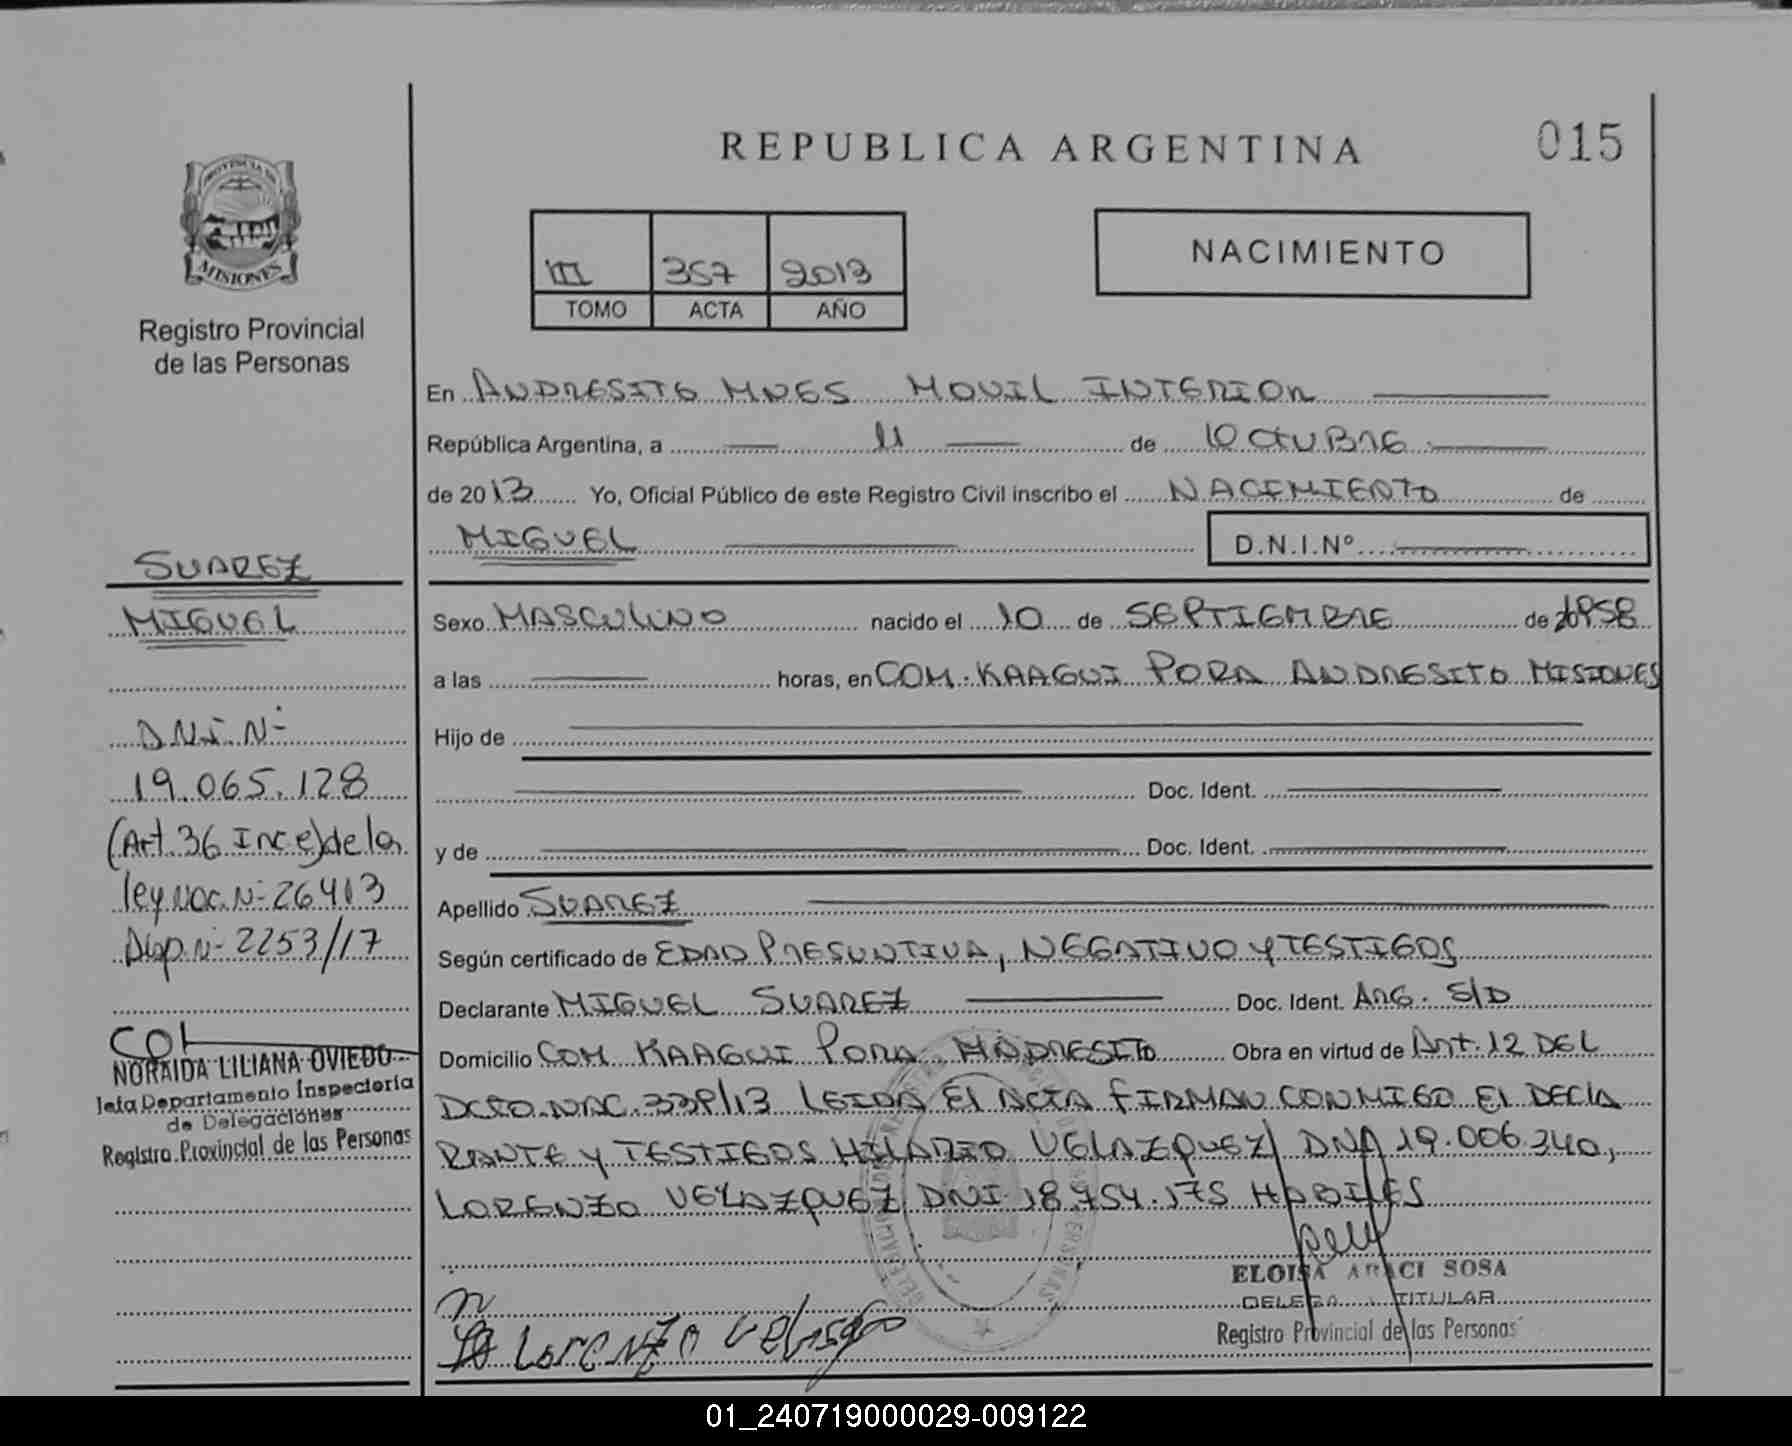 REPUBLICA ARGENTINA
015
PROVINCIA DE
MISIONES
Registro Provincial
de las Personas
III 357 2013
TOMO ACTA AÑO
NACIMIENTO
En ANDRESITO MNES MOVIL INTERIOR
República Argentina, a 11 de 10 OCTUBRE
de 2013 Yo, Oficial Público de este Registro Civil inscribo el NACIMIENTO de
MIGUEL D.N.I.Nº
SUAREZ
MIGUEL
D.N.I. Nº
19.065.128
(Art. 36 Inc e) de la
ley nac. Nº 26413
Disp. Nº 2253/17
NORAIDA LILIANA OVIEDO
Jefa Departamento Inspectoría
de Delegaciones
Registro Provincial de las Personas
Sexo MASCULINO nacido el 10 de SEPTIEMBRE de 1958
a las horas, en COM. KAAGUI PORA ANDRESITO MISIONES
Hijo de
Doc. Ident.
y de Doc. Ident.
Apellido SUAREZ
Según certificado de EDAD PRESUNTIVA, NEGATIVO Y TESTIGOS
Declarante MIGUEL SUAREZ Doc. Ident. ARG. S/D
Domicilio COM KAAGUI PORA ANDRESITO Obra en virtud de ART. 12 DEL
DCTO. NAC. 339/13 LEIDA EL ACTA FIRMAN CONMIGO EL DECLA
RANTE Y TESTIGOS HILARIO VELAZQUEZ DNI 19.006.340,
LORENZO VELAZQUEZ DNI 18.754.175 HABILES
ELOISA ARACI SOSA
DELEGADA TITULAR
Registro Provincial de las Personas
Lorenzo
01_240719000029-009122